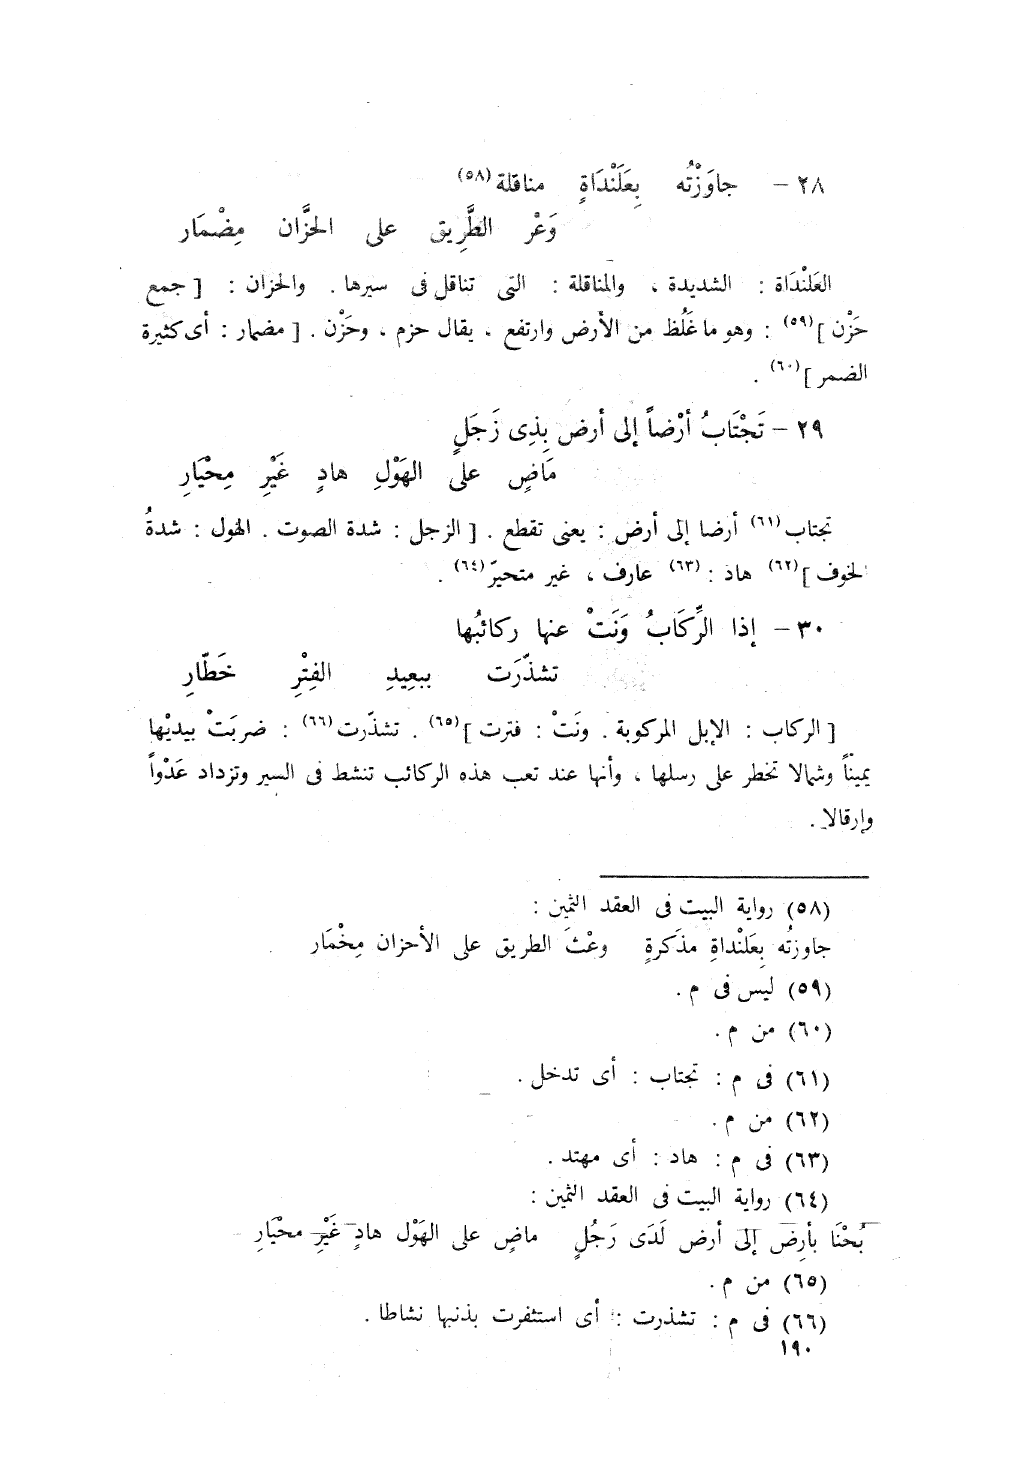 ٢٨ – جاوَزْتُه بِعَلَنْدَاةٍ مناقلة(٥٨)
وَعْر الطَّرِيق على الحزَّان مِضْمَار
العَلَنْدَاة : الشديدة ، والمناقلة : التى تناقل فى سيرها . والحزان : [ جمع
حَزْن ](٥٩) : وهو ما غَلُظ من الأرض وارتفع ، يقال حزم ، وحَزْن . [ مضمار : أى كثيرة
الضمر ](٦٠) .
٢٩ – تَجْتَابُ أرْضاً إلى أرض بِذِى زَجَلٍ
مَاضٍ على الهَوْلِ هادٍ غَيْرِ مِحْيَارِ
تجتاب(٦١) أرضا إلى أرض : يعنى تقطع . [ الزجل : شدة الصوت . الهول : شدةُ
الخوف ](٦٢) هاد :(٦٣) عارف ، غير متحيرّ(٦٤) .
٣٠ – إذا الرِّكَابُ وَنَتْ عنها ركائبُها
تشذّرَت ببعِيدِ الفِتْرِ خَطّارِ
[ الركاب : الإبل المركوبة . ونَتْ : فترت ](٦٥) . تشذّرت(٦٦) : ضربَتْ بيديْها
يميناً وشمالا تخطر على رسلها ، وأنها عند تعب هذه الركائب تنشط فى السير وتزداد عَدْواً
وإرقالا .
(٥٨) رواية البيت فى العقد الثمين :
جاوزتُه بِعَلَنْداةِ مذكرةٍ وعْثَ الطريق على الأحزان مِخْمَار
(٥٩) ليس فى م .
(٦٠) من م .
(٦١) فى م : تجتاب : أى تدخل .
(٦٢) من م .
(٦٣) فى م : هاد : أى مهتد .
(٦٤) رواية البيت فى العقد الثمين :
بُحْنَا بأرضٍ إلى أرض لَدَى رَجُلٍ ماضٍ على الهَوْل هادٍ غَيْرِ محْيَارِ
(٦٥) من م .
(٦٦) فى م : تشذرت : أى استثفرت بذنبها نشاطا .
١٩٠